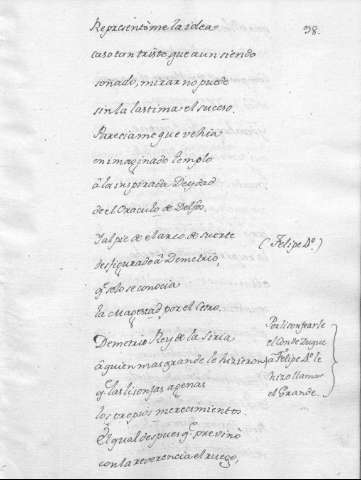 38.
Representòme la idea
caso tan triste, que aun siendo
soñado, mirar no puedo
sin la lastima el suceso.
Pareciame que vehia
en imaginado templo
â la inspirada Deydad
de el Oraculo de Delfos.
Y al pie de el arco de suerte
desfigurado â Demetrio,
q̃ solo se conocia
la Magestad por el Cetro.
(Felipe 4º.)
Demetrio Rey de la Siria
â quien mas grande le hizieron
q̃ las lisonjas agenas
los propios merecimentos.
Por lisonjearle
el Conde Duque
a Felipe 4º. le
hizo llamar
el Grande.
El qual despues q̃ previno
con la reverencia el ruego,